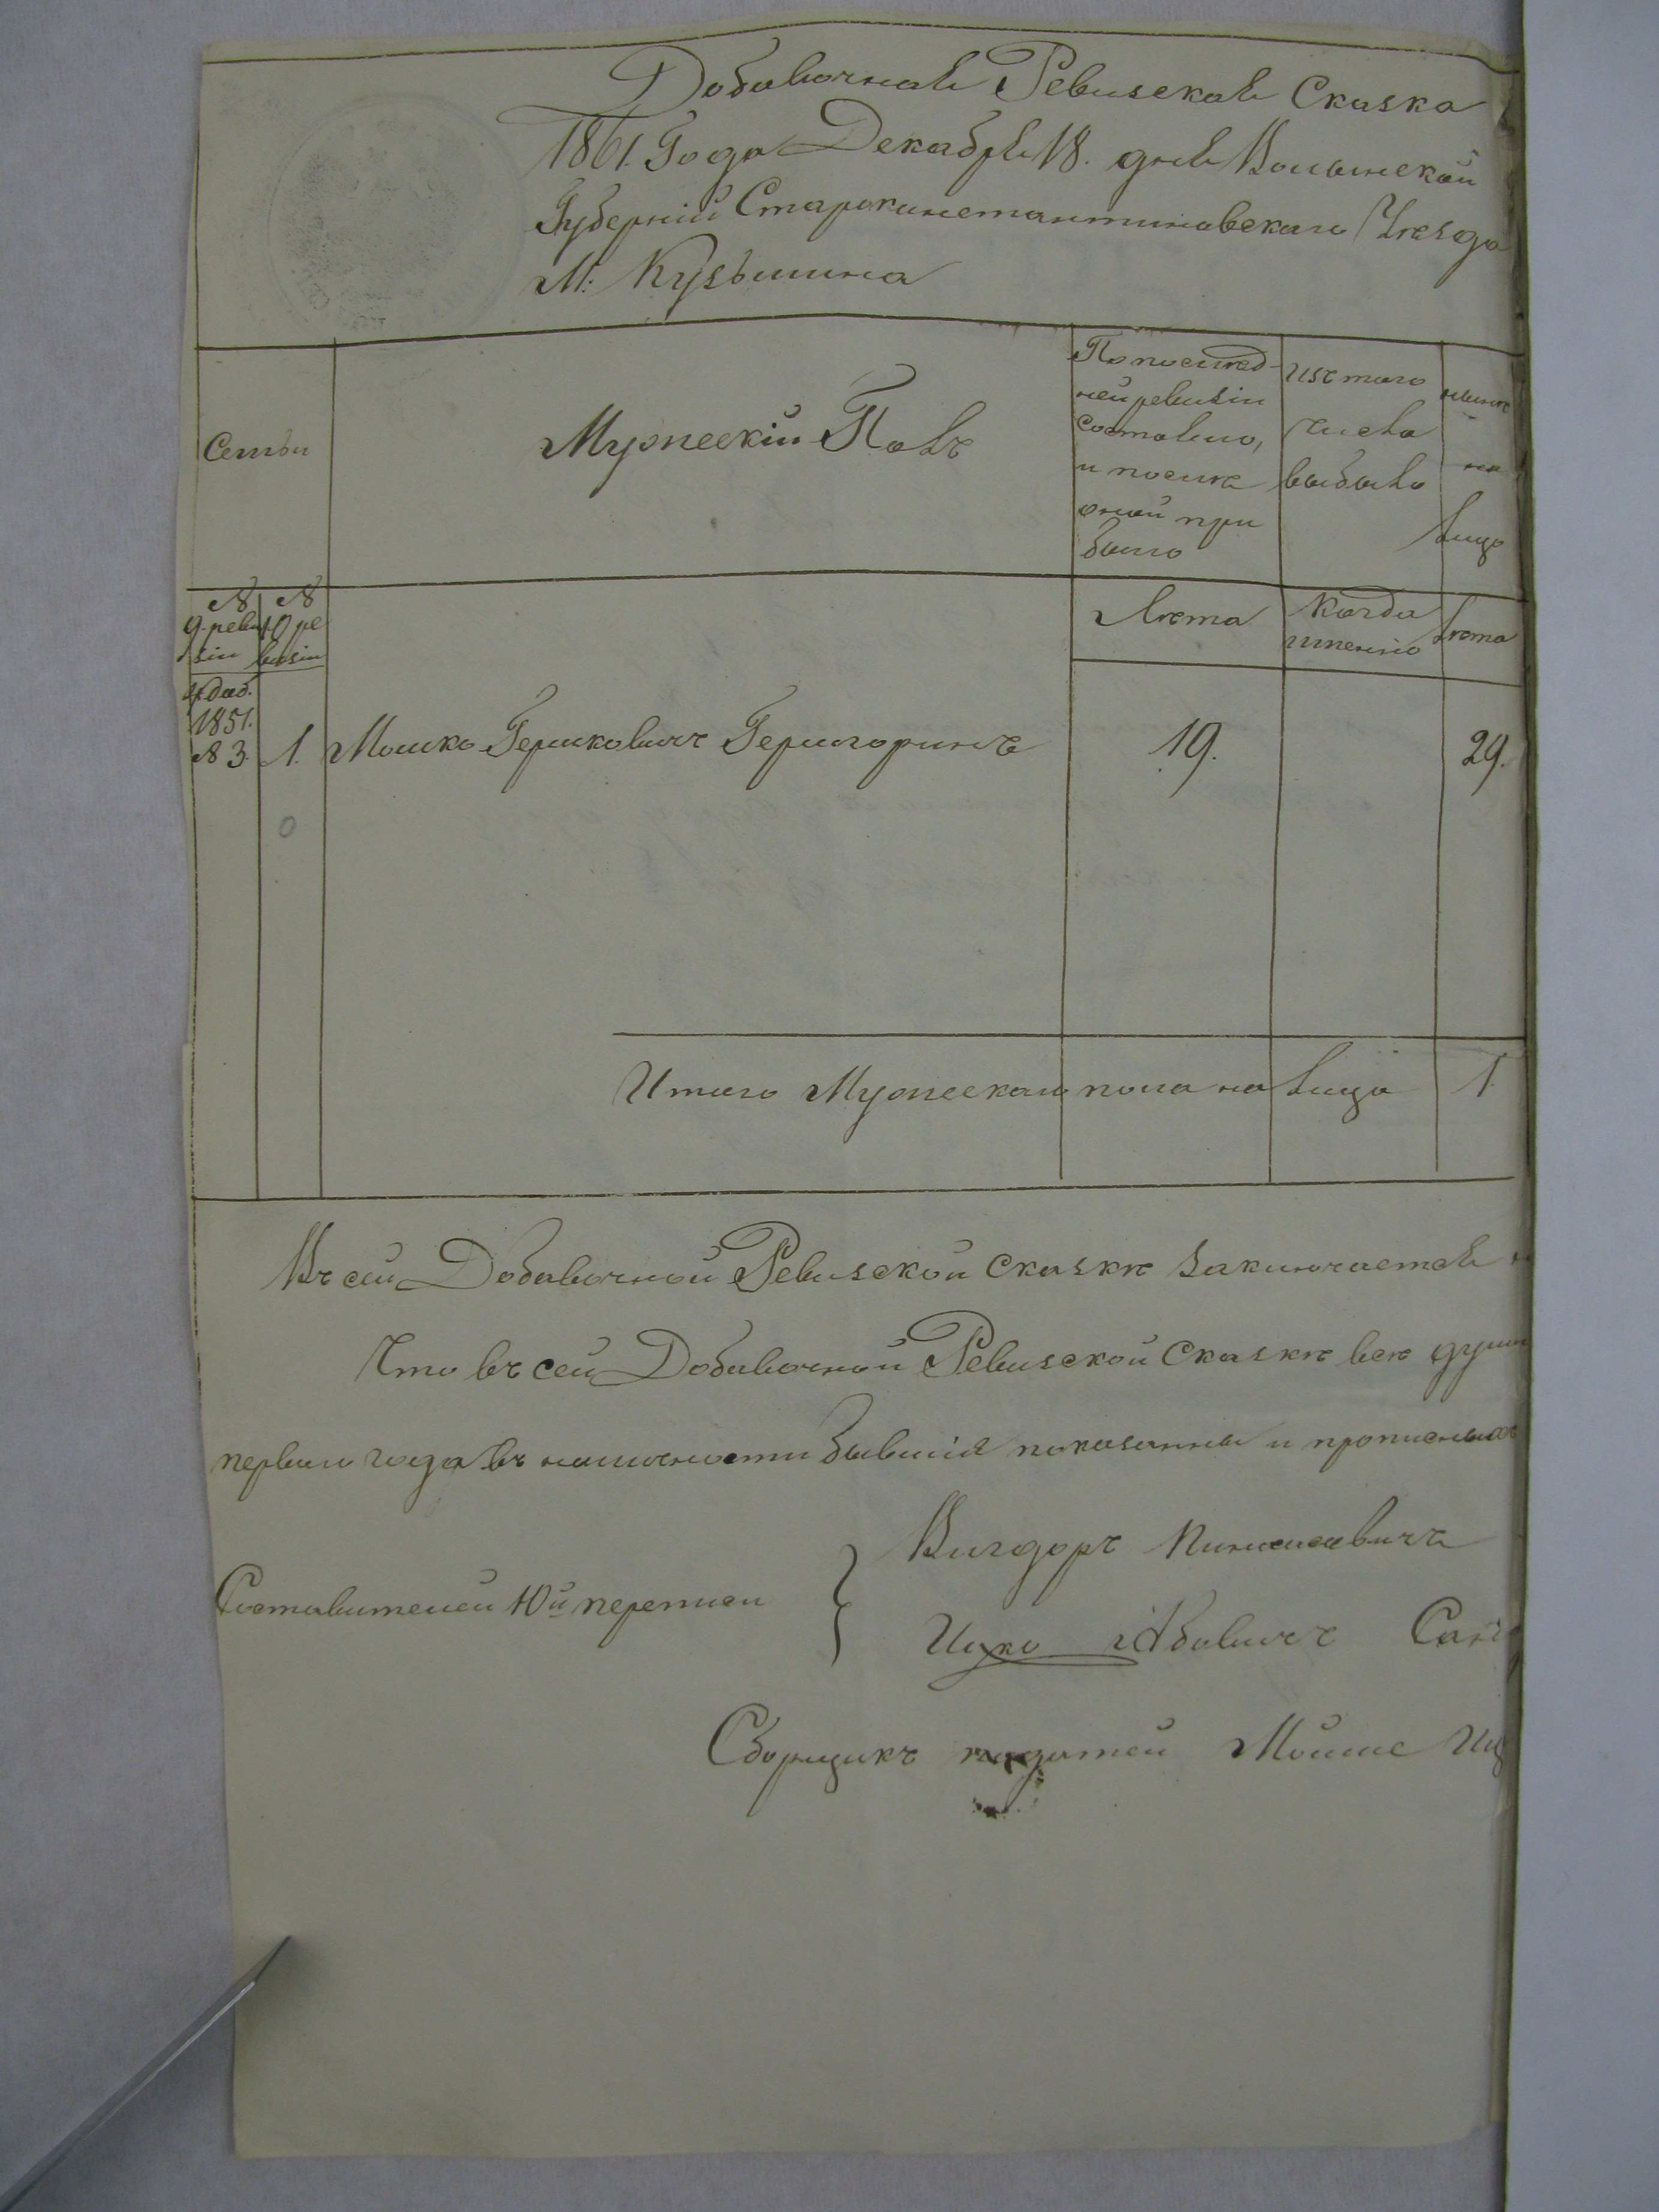 Добавочная Ревизская Сказка
1861. Года Декабря 18. дня Волынской
Губерніи Староконстантиновскаго Уѣзда
М: Кузьмина
Семьи
Мужескій Полъ
По послѣд-
ней ревизіи
состояло,
и послѣ
оной при
было
изъ того
числа
выбыло
нынѣ
на
лицо
№
9. реви
зіи
№
10 ре
визіи
Лѣта
Когда
именно
Лѣта
доб.
1851.
№ 3.
1.
Мошко Гершковичъ
19.
29.
0
Итого Мужескаго пола на лицо 1
Въ сей Добавочной Ревизской Сказкѣ Заключается
Что въ сей Добавочной Ревизской Сказкѣ всѣ души
первый года въ наличности бывшія показаны и прописныхъ
Составителей 10й переписи
Вигдоръ
Ицко Абовичъ
Сборщикъ податей Мойше Иц